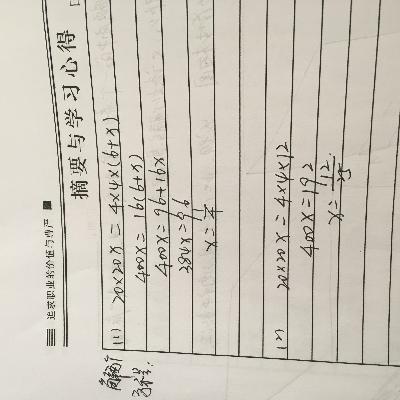 追求职业的价值与尊严
摘要与学习心得
(1) 20×20x = 4×4×(6+x)
400x = 16(6+x)
400x = 96+16x
384x = 96
x = 1/4
(2) 20×20x = 4×4×12
400x = 192
x = 12/25